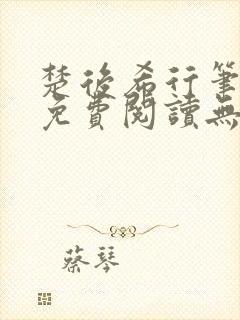 楚後希行筆
免費閱讀無
蔡琴